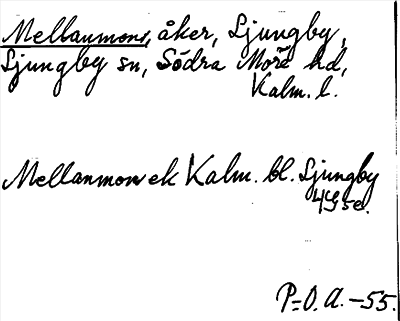 Mellanmons, åker, Ljungby,
Ljungby sn, Södra Möre hd,
Kalm. l.
Mellanmon ek Kalm. bl. Ljungby
4G5e.
P-O. A. -55.